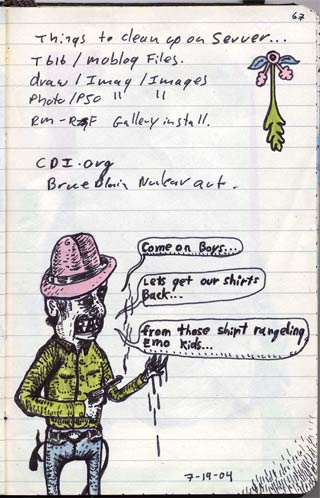 67
Things to clean up on Server...
T616 / moblog Files.
draw / Imag / Images
Photo / P50 " "
RM - RF Gallery install.
CDI.org
Bruce Blair Nuclear aut.
Come on Boys...
Lets get our shirts
Back...
from those shirt rangeling
Emo kids...
7-19-04